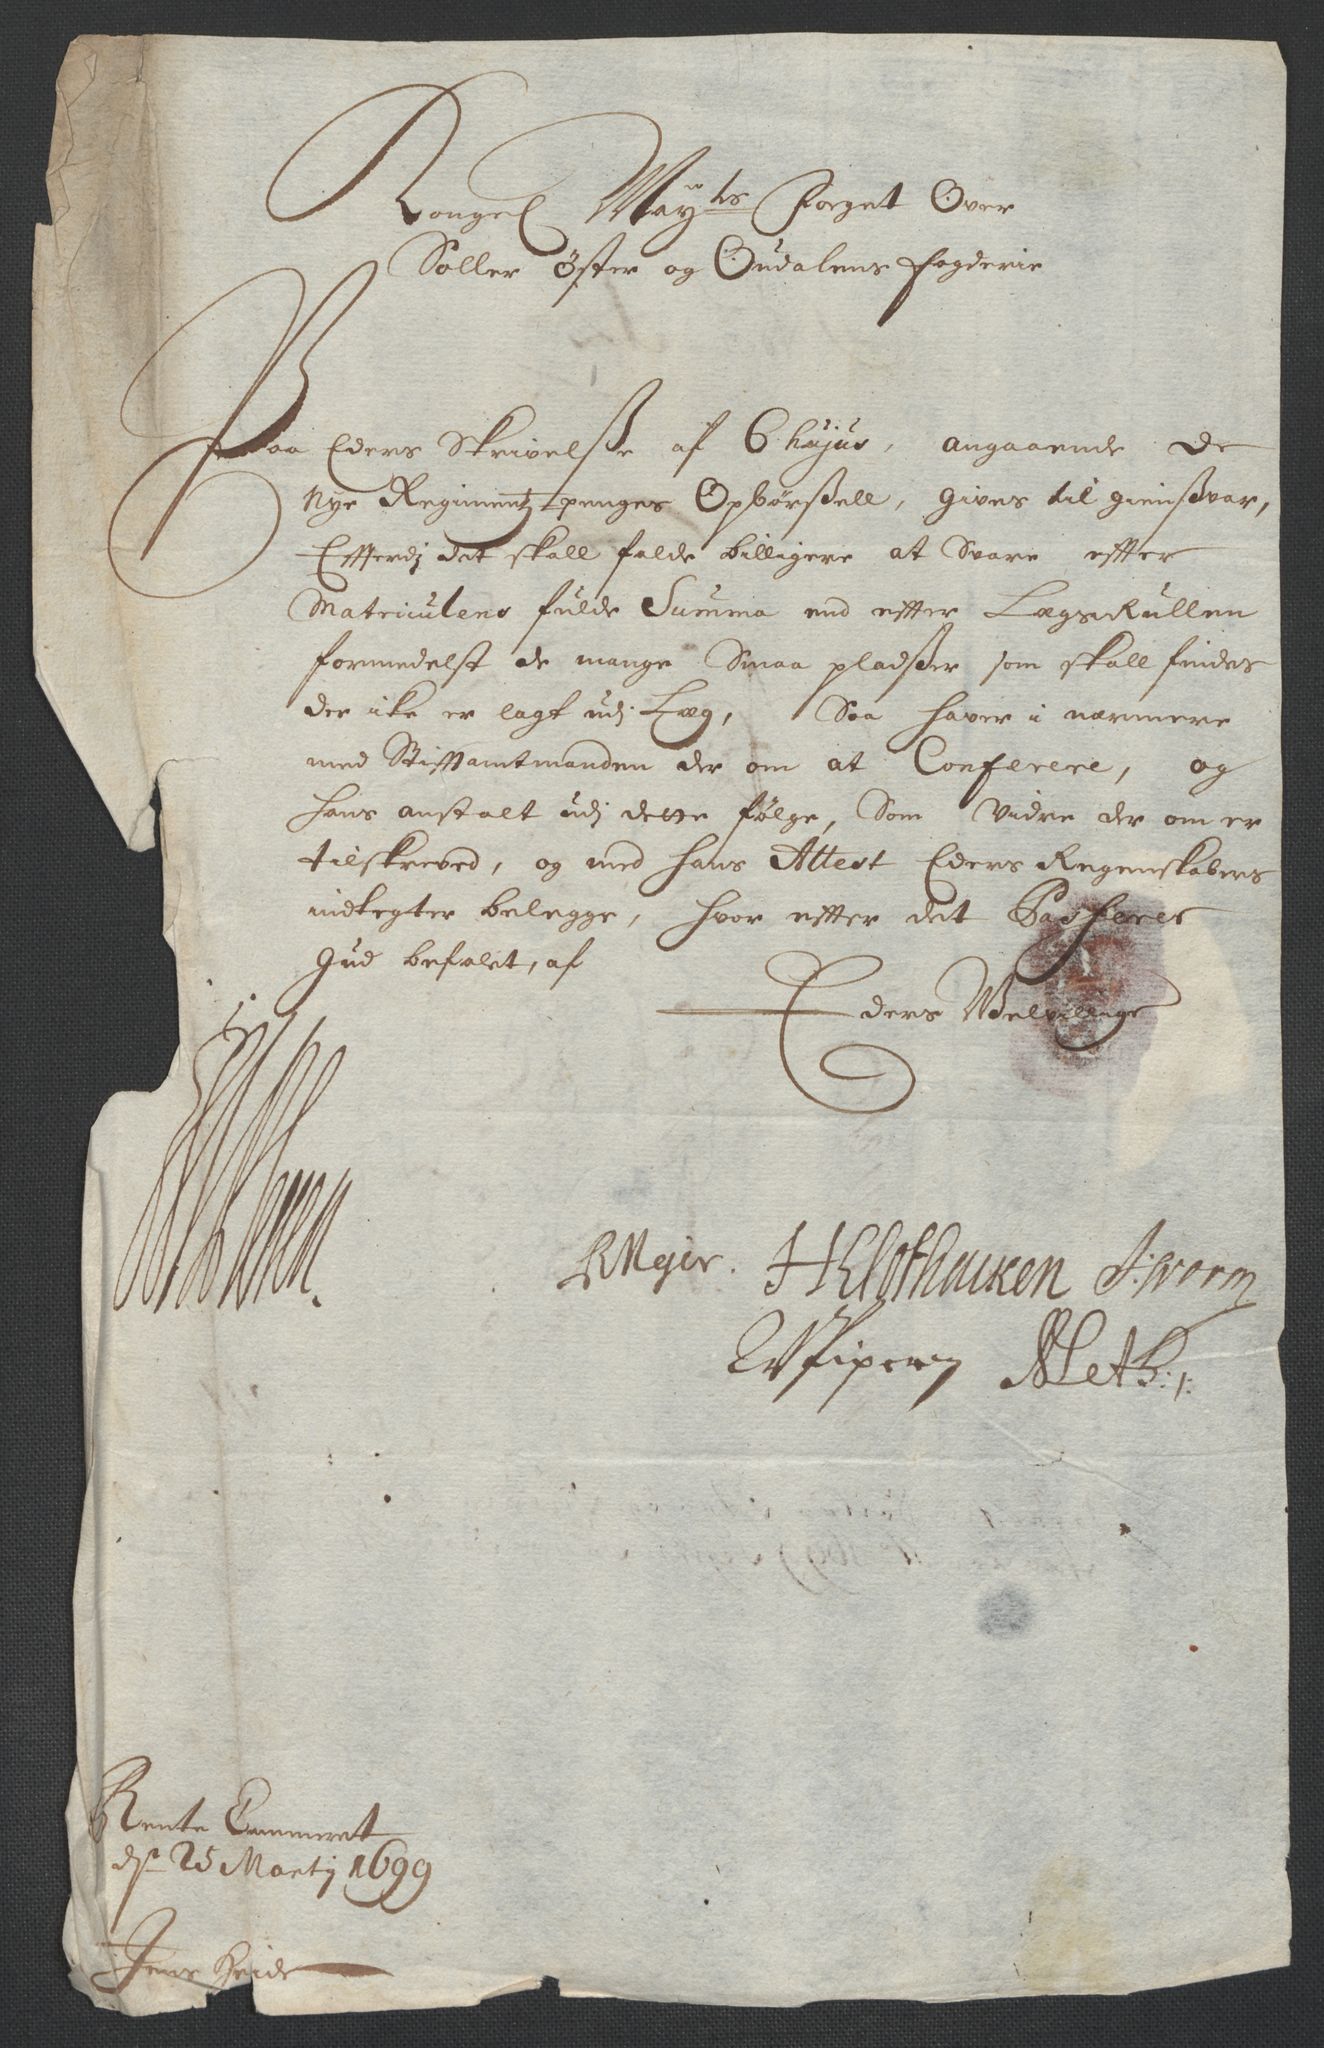 Kongel Mayts Foeget Over
Soller Øster og Oudalens fogderie
Paa Eders Skrivelsse af 6 hujus, angaaende de
Nye Regimentz penges Opbørssell, gives til giensvar,
Effterdj det skall falde billigere at Svare effter
Matriculens fulde Summa end effter LægsRullen
formedelst de mange Smaa pladsser som skall findes
der icke er lagt udj Læg, Saa haver i nærmere
med Stifftamtmanden der om at Conferere, og
hans anstalt udj dette følge, Som vidre der om er
tilskreved, og med hans Attest Eders Regenskabers
indtegter belegge, hvor effter det Passeres
Gud befalet, af
Eders Welvillige
RMejer. H Klothacken J: Worm
Meth:
Rente Cammeret
d 25 Martij 1699
Jens Heide